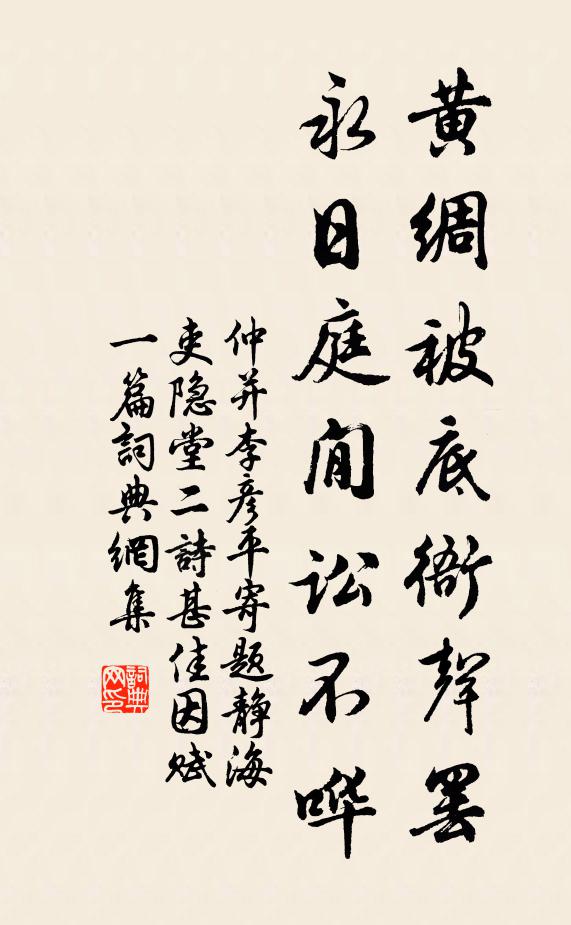 黄绸被底衙聲罢
永日庭闲讼不哗
仲并李彦平寄题静海
吏隐堂二詩甚佳因赋
一篇詞典網集
詞典
网印